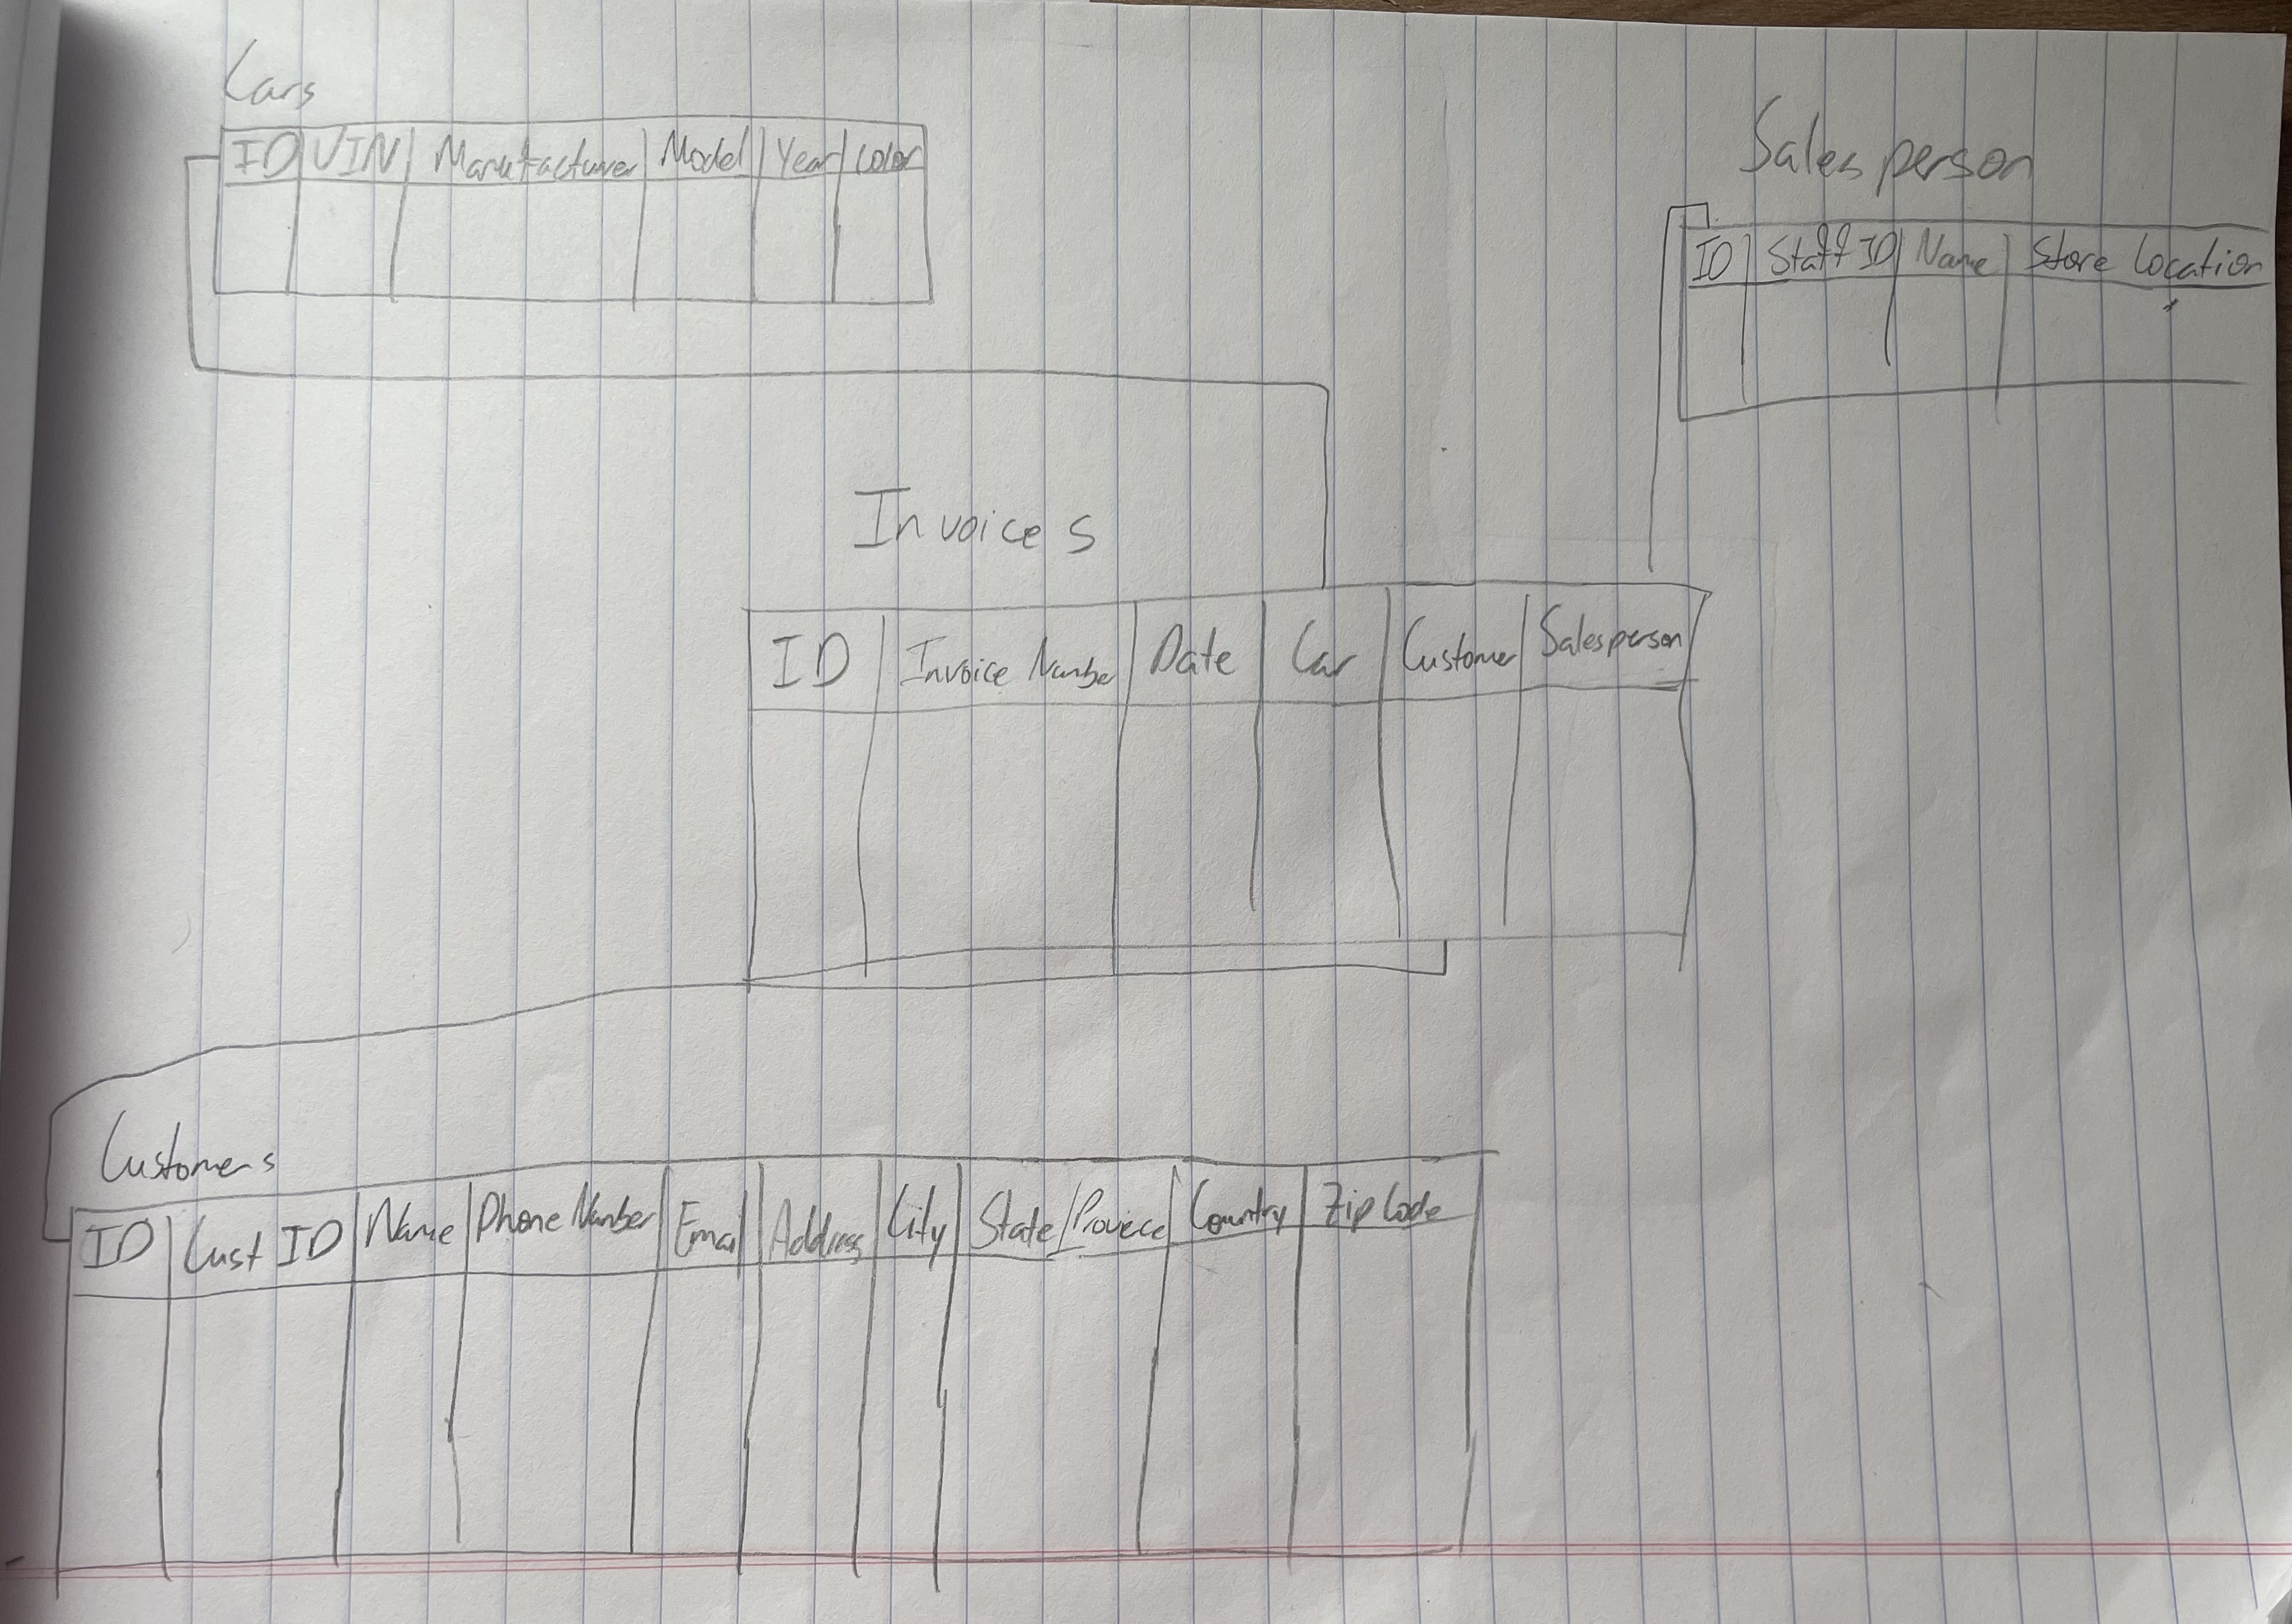 Cars
ID VIN Manufacturer Model Year Color
Salesperson
ID Staff ID Name Store Location
Invoices
ID Invoice Number Date Car Customer Salesperson
Customers
ID Cust ID Name Phone Number Email Address City State/Proviece Country Zip Code